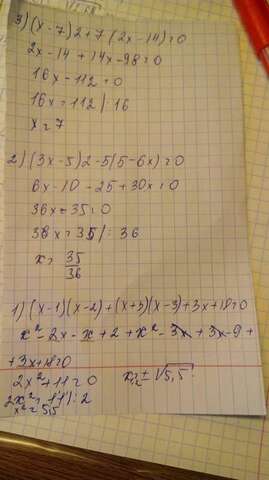 3) (x-7)2+7(2x-14)=0
2x-14+14x-98=0
16x-112=0
16x=112|:16
x=7
2) (3x-5)2-5(5-6x)=0
6x-10-25+30x=0
36x-35=0
36x=35|:36
x=35/36
1) (x-1)(x-2)+(x+3)(x-3)+3x+18=0
x²-2x-x+2+x²-3x+3x-9+
+3x+18=0
2x²+11=0
2x²=11|:2
x²=5,5
x₁,₂=±√5,5